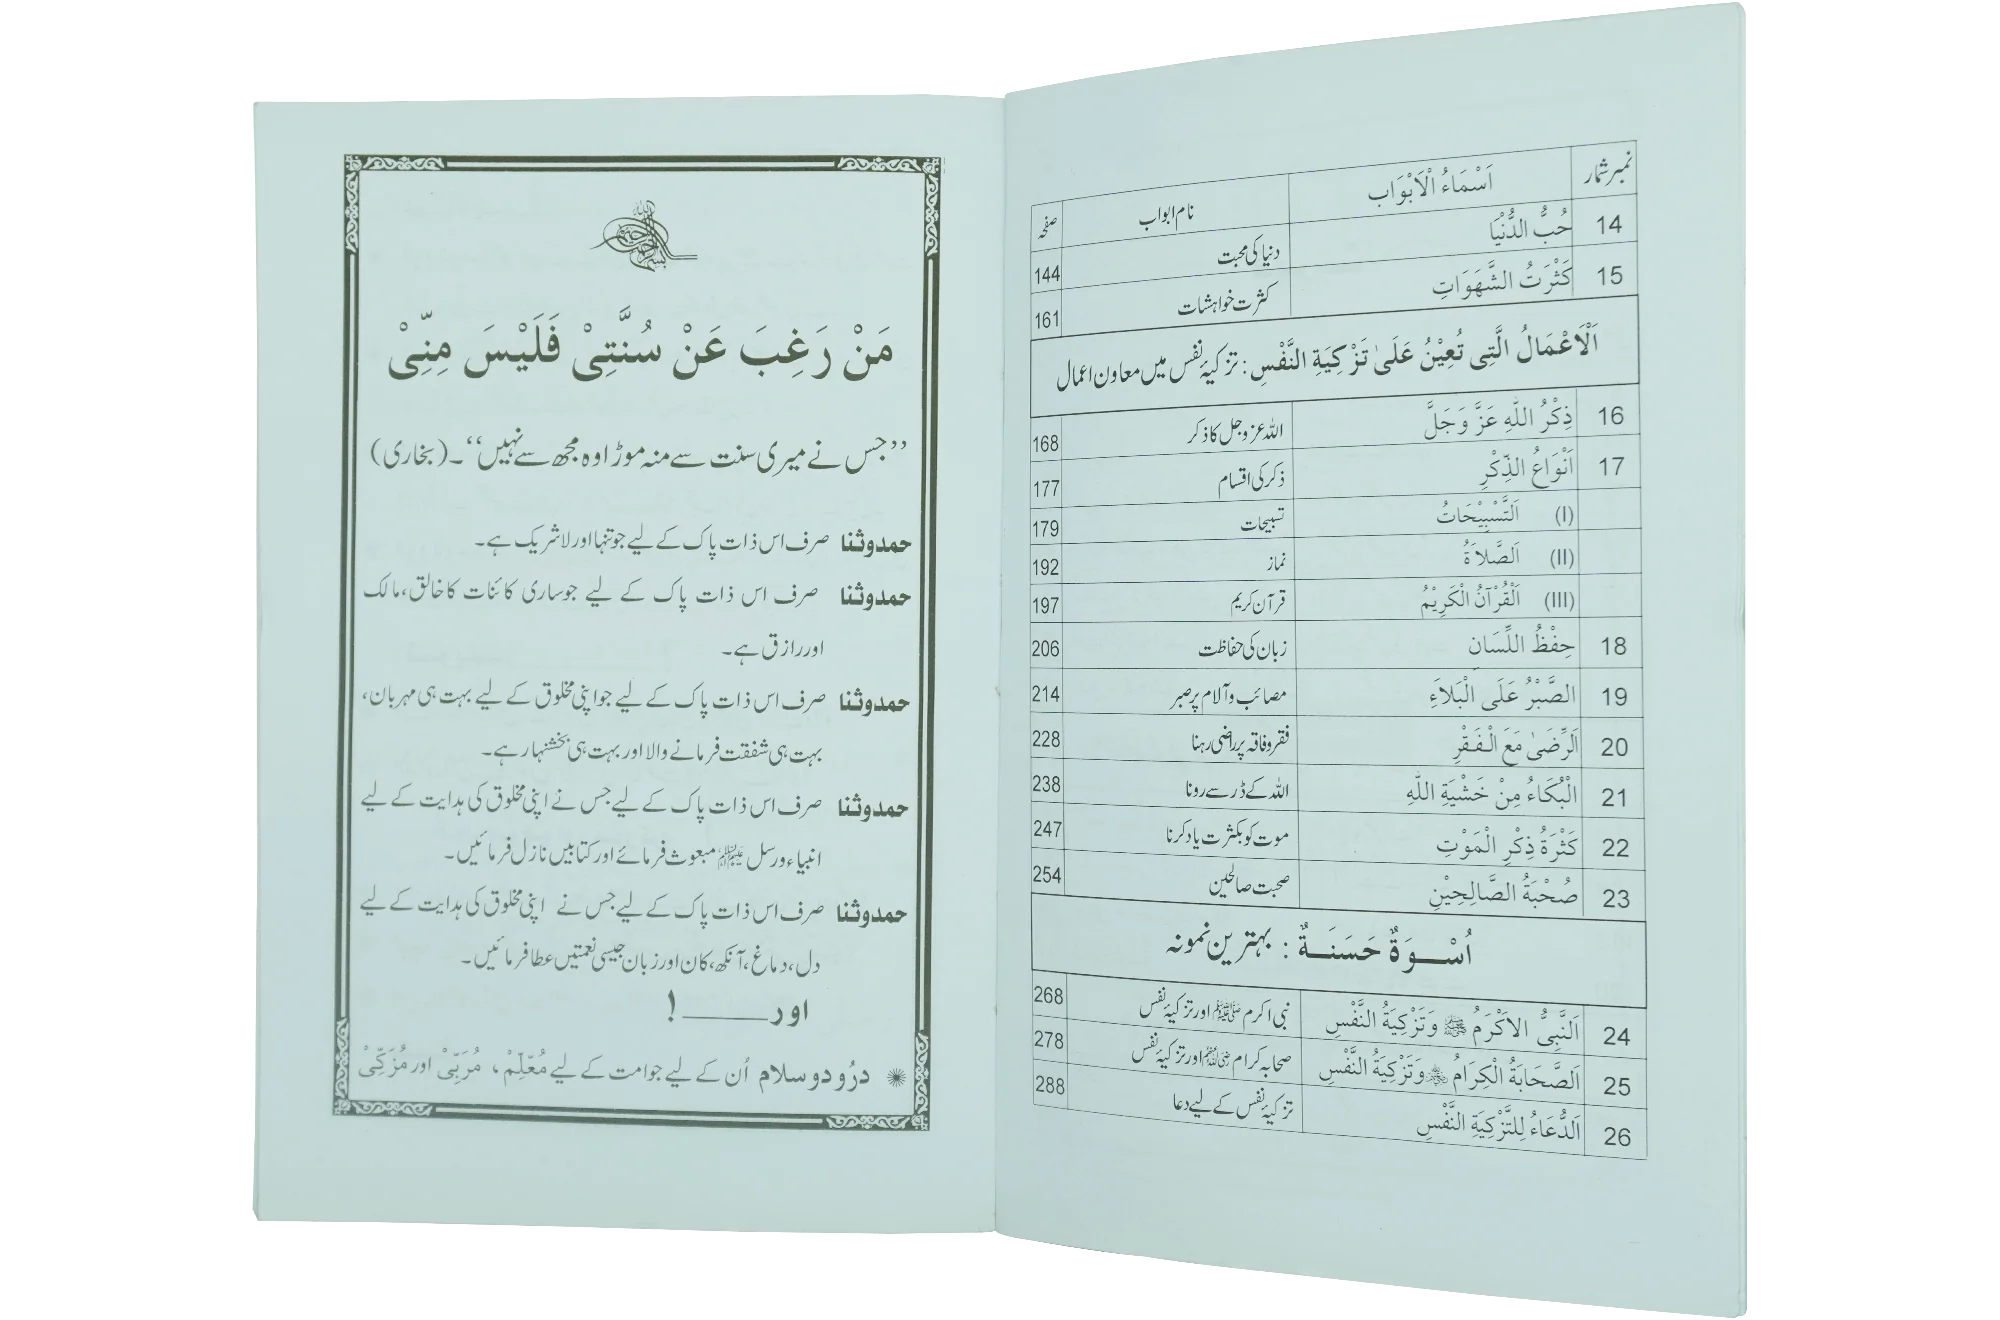 نمبر شمار اَسْمَاءُ الْاَبْوَاب نام ابواب صفحہ
14 حُبُّ الدُّنْيَا دنیا کی محبت 144
15 كَثْرَتُ الشَّهَوَاتِ کثرت خواہشات 161
اَلْاَعْمَالُ الَّتِى تُعِيْنُ عَلَىٰ تَزْكِيَةِ النَّفْسِ : تزکیۂ نفس میں معاون اعمال
16 ذِكْرُ اللّٰهِ عَزَّ وَجَلَّ اللہ عزوجل کا ذکر 168
17 اَنْوَاعُ الذِّكْرِ ذکر کی اقسام 177
(I) اَلتَّسْبِيْحَاتُ تسبیحات 179
(II) اَلصَّلاَةُ نماز 192
(III) اَلْقُرْآنُ الْكَرِيْمُ قرآن کریم 197
18 حِفْظُ اللِّسَانِ زبان کی حفاظت 206
19 الصَّبْرُ عَلَى الْبَلاَءِ مصائب و آلام پر صبر 214
20 اَلرِّضَىٰ مَعَ الْفَقْرِ فقر و فاقہ پر راضی رہنا 228
21 الْبُكَاءُ مِنْ خَشْيَةِ اللّٰهِ اللہ کے ڈر سے رونا 238
22 كَثْرَةُ ذِكْرِ الْمَوْتِ موت کو بکثرت یاد کرنا 247
23 صُحْبَةُ الصَّالِحِيْنِ صحبت صالحین 254
اُسْوَةٌ حَسَنَةٌ : بہترین نمونہ
24 اَلنَّبِىُّ الاَكْرَمُ ﷺ وَتَزْكِيَةُ النَّفْسِ نبی اکرم ﷺ اور تزکیۂ نفس 268
25 اَلصَّحَابَةُ الْكِرَامُ وَتَزْكِيَةُ النَّفْسِ صحابہ کرام اور تزکیۂ نفس 278
26 اَلدُّعَاءُ لِلتَّزْكِيَةِ النَّفْسِ تزکیۂ نفس کے لیے دعا 288
بسم اللہ الرحمن الرحیم
مَنْ رَغِبَ عَنْ سُنَّتِىْ فَلَيْسَ مِنِّىْ
’’جس نے میری سنت سے منہ موڑا وہ مجھ سے نہیں‘‘۔ (بخاری)
حمد و ثنا صرف اس ذات پاک کے لیے جو تنہا اور لاشریک ہے۔
حمد و ثنا صرف اس ذات پاک کے لیے جو ساری کائنات کا خالق، مالک
اور رازق ہے۔
حمد و ثنا صرف اس ذات پاک کے لیے جو اپنی مخلوق کے لیے بہت ہی مہربان،
بہت ہی شفقت فرمانے والا اور بہت ہی بخشنہار ہے۔
حمد و ثنا صرف اس ذات پاک کے لیے جس نے اپنی مخلوق کی ہدایت کے لیے
انبیاء و رسل مبعوث فرمائے اور کتابیں نازل فرمائیں۔
حمد و ثنا صرف اس ذات پاک کے لیے جس نے اپنی مخلوق کی ہدایت کے لیے
دل، دماغ، آنکھ، کان اور زبان جیسی نعمتیں عطا فرمائیں۔
اور ـــــــــ !
درُود و سلام اُن کے لیے جو امت کے لیے مُعَلِّمْ، مُرَبِّىْ اور مُزَكِّىْ